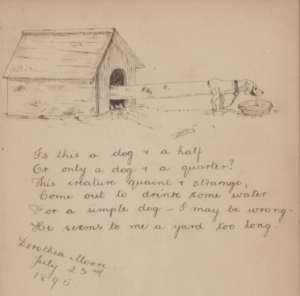 Is this a dog & a half
Or only a dog & a quarter?
This creature quaint & strange,
Come out to drink some water
For a simple dog - I may be wrong -
He seems to me a yard too long.
Dorothea Moore
July 23rd
1896.